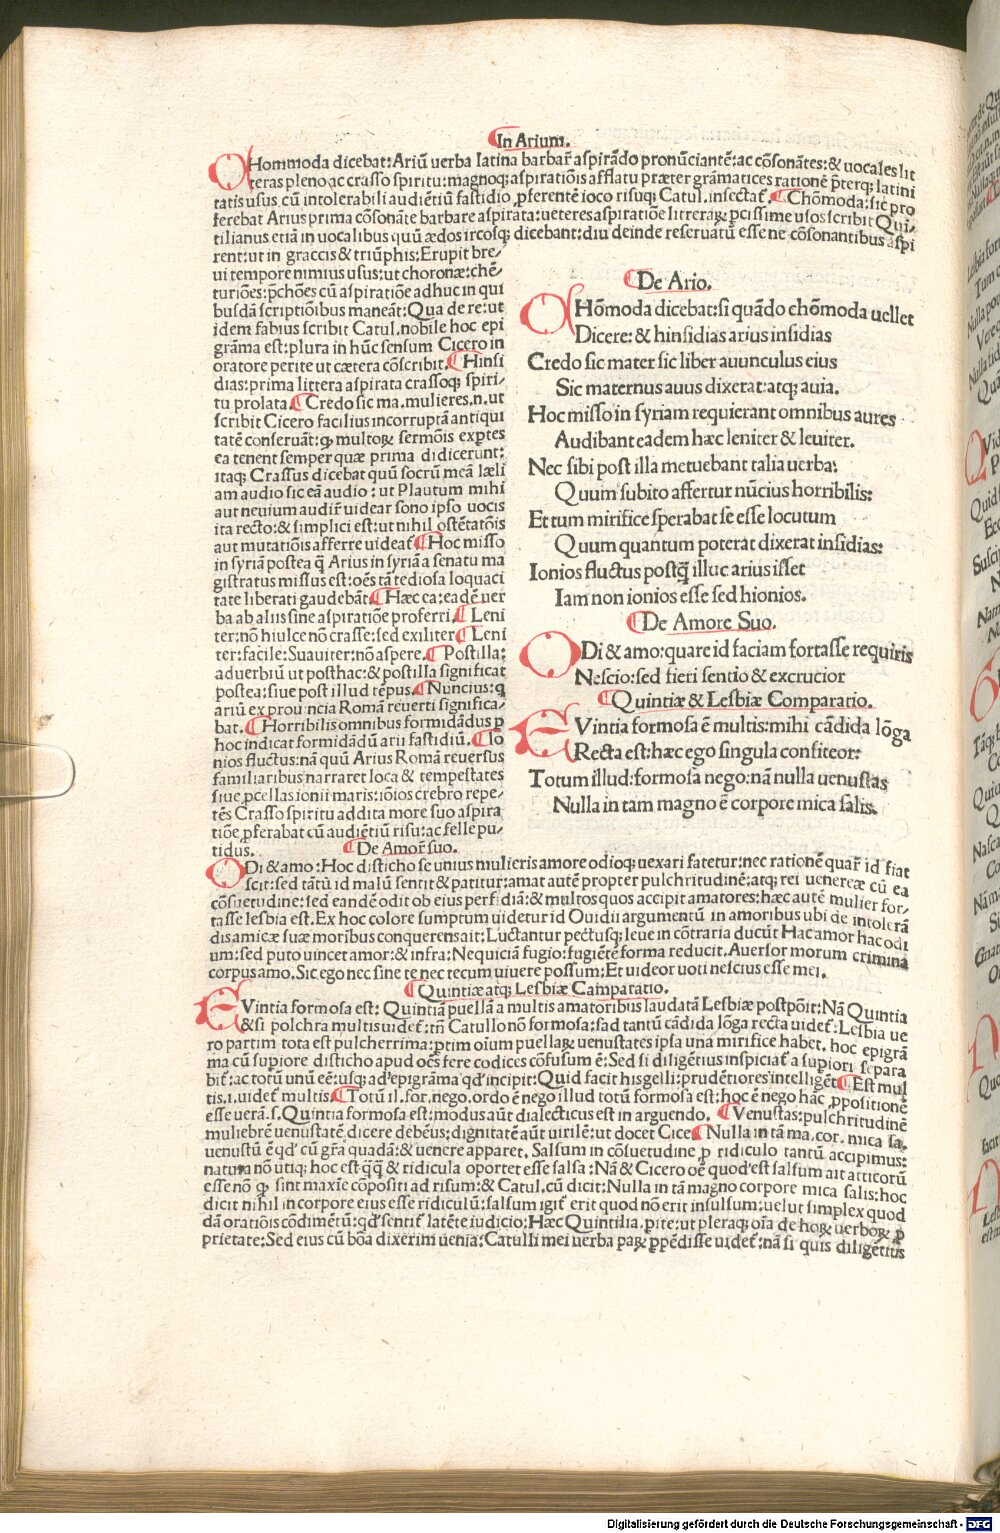 In Arium.
CHommoda dicebat: Ariũ uerba latina barbar̃ aspirãdo pronũciantẽ: ac cõsonãtes: & uocales lit
teras pleno ac crasso spiritu: magnoqꝫ aspiratiõis afflatu præter grãmatices rationẽ p̱terqꝫ latini
tatis usus cũ intolerabili audiẽtiũ fastidio p̱ferentẽ ioco risuqꝫ Catul. insectat̃. Chõmoda: sic pro
ferebat Arius prima cõsonãte barbare aspirata: ueteres aspiratiõe litteraꝝ p̱cissime usos scribit Qui/
tilianus etiã in uocalibus quũ ædos ircosqꝫ dicebant: diu deinde reseruatũ esse ne cõsonantibus aspi
rent: ut in graccis & triũphis: Erupit bre/
ui tempore nimius usus: ut choronæ: chẽ/
turiões: p̱chões cũ aspiratiõe adhuc in qui
busdã scriptiõibus maneãt: Qua de re: ut
idem fabius scribit Catul. nobile hoc epi
grãma est: plura in hũc sensum Cicero in
oratore perite ut cætera cõscribit. Hinsi
dias: prima littera aspirata crassoqꝫ spiri/
tu prolata. Credo sic ma. mulieres. n. ut
scribit Cicero facilius incorruptã antiqui
tatẽ conseruãt: ꝙ multoꝝ sermõis exp̱tes
ea tenent semper quæ prima didicerunt:
itaqꝫ Crassus dicebat quũ socrũ meã læli
am audio sic eã audio: ut Plautum mihi
aut neuium audir̃ uidear sono ipso uocis
ita recto: & simplici est: ut nihil ostẽtatõis
aut mutatiõis afferre uideat̃ Hoc misso
in syriã postea q̃ Arius in syriã a senatu ma
gistratus missus est: oẽs tã tediosa loquaci
tate liberati gaudebãt. Hæc ea: eadẽ uer
ba ab aliis sine aspiratiõe proferri. Leni
ter: nõ hiulce nõ crasse: sed exiliter Leni
ter: facile: Suauiter: nõ aspere. Postilla:
aduerbiũ ut posthac: & postilla significat
postea: siue post illud tẽpus. Nuncius: q
ariũ ex prouncia Romã reuerti significa/
bat. Horribilis omnibus formidãdus p
hoc indicat formidãdũ arii fastidiũ. Io
nios fluctus: nã quũ Arius Romã reuersus
familiaribus narraret loca & tempestates
siue p̱cellas ionii maris: iõios crebro repe/
tẽs Crasso spiritu addita more suo aspira
tiõe p̱ferabat cũ audiẽtiũ risu: ac felle pu/
tidus.
De Ario.
CHõmoda dicebat: si quãdo chõmoda uellet
Dicere: & hinsidias arius insidias
Credo sic mater sic liber auunculus eius
Sic maternus auus dixerat: atqꝫ auia.
Hoc misso in syriam requierant omnibus aures
Audibant eadem hæc leniter & leuiter.
Nec sibi post illa metuebant talia uerba:
Quum subito affertur nũcius horribilis:
Et tum mirifice sperabat se esse locutum
Quum quantum poterat dixerat insidias:
Ionios fluctus postq̃ illuc arius isset
Iam non ionios esse sed hionios.
De Amore Suo.
ODi & amo: quare id faciam fortasse requiris
Nescio: sed fieri sentio & excrucior
Quintiæ & Lesbiæ Comparatio.
EVintia formosa ẽ multis: mihi cãdida lõga
Recta est: hæc ego singula confiteor:
Totum illud: formosa nego: nã nulla uenustas
Nulla in tam magno ẽ corpore mica salis.
De Amor̃ suo.
ODi & amo: Hoc disticho se unius mulieris amore odioqꝫ uexari fatetur: nec rationẽ quar̃ id fiat
scit: sed tãtũ id malũ sentit & patitur: amat autẽ propter pulchritudinẽ: atqꝫ rei uenereæ cũ ea
cõsuetudinẽ: sed eandẽ odit ob eius perfidiã: & multos quos accipit amatores: hæc autẽ mulier for/
tasse lesbia est. Ex hoc colore sumptum uidetur id Ouidii argumentũ in amoribus ubi de intolerã
dis amicæ suæ moribus conquerens ait: Luctantur pectusqꝫ leue in cõtraria ducũt Hac amor hac odi
um: sed puto uincet amor: & infra: Nequiciã fugio: fugiẽtẽ forma reducit. Auersor morum crimina
corpus amo. Sic ego nec sine te nec tecum uiuere possum: Et uideor uoti nescius esse mei.
Quintiæ atqꝫ Lesbiæ Camparatio.
EVintia formosa est: Quintiã puellã a multis amatoribus laudatã Lesbiæ postpõit: Nã Quintia
& si polchra multis uidet̃: tñ Catullo nõ formosa: sad tantũ cãdida lõga recta uidet̃: Lesbia ue
ro partim tota est pulcherrima: p̱tim oium puellaꝝ uenustates ipsa una mirifice habet. hoc epigrã
ma cũ supiore disticho apud oẽs fere codices cõfusum ẽ: Sed si diligẽtius inspiciat̃ a supiori separa
bit̃: ac totũ unũ eẽ: usqꝫ ad epigrãma qd' incipit: Quid facit his gelli: prudẽtiores intelligẽt Est mul
tis. i. uidet̃ multis. Totũ il. for. nego. ordo ẽ nego illud totũ formosa est: hoc ẽ nego hãc p̱positionẽ
esse uerã. s. Quintia formosa est: modus aũt dialecticus est in arguendo. Venustas: pulchritudinẽ
muliebrẽ uenustatẽ dicere debẽus: dignitatẽ aũt uirilẽ: ut docet Cice. Nulla in tã ma. cor. mica sa.
uenustũ ẽ qd' cũ gr̃a quadã: & uenere apparet. Salsum in cõsuetudine p̱ ridiculo tantũ accipimus:
natura nõ utiqꝫ: hoc est q̃q̃ & ridicula oportet esse salsa: Nã & Cicero oẽ quod est salsum ait atticorũ
esse nõ ꝙ sint maxĩe cõpositi ad risum: & Catul. cũ dicit: Nulla in tã magno corpore mica salis: hoc
dicit nihil in corpore eius esse ridiculũ: salsum igit̃ erit quod nõ erit insulsum: uelut simplex quod
dã oratiõis cõdimẽtũ: qd' sentit̃ latẽte iudicio: Hæc Quintilia. p̱ite: ut pleraqꝫ oĩa de hoꝝ uerboꝝ p̱
prietate: Sed eius cũ bõa dixerim uenia: Catulli mei uerba paꝝ p̱pẽdisse uidet̃: nã si quis diligẽtius
Digitalisierung gefördert durch die Deutsche Forschungsgemeinschaft - DFG